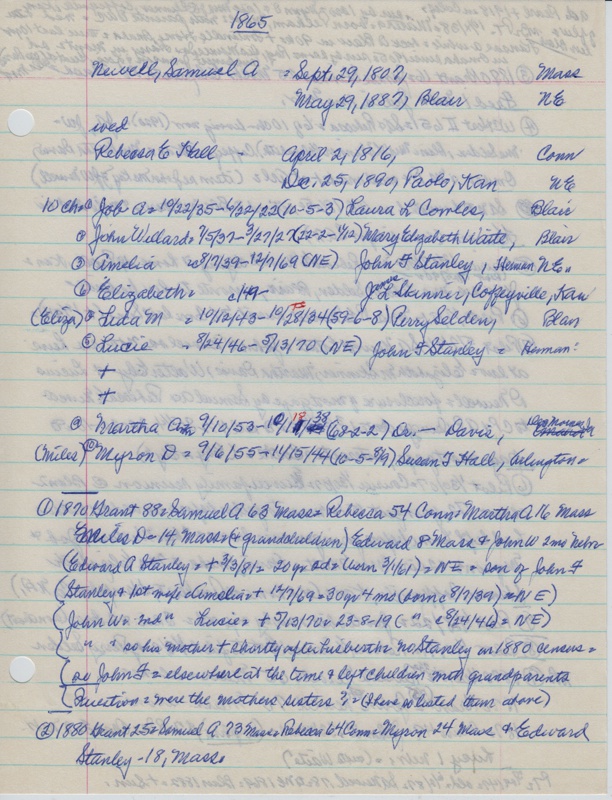 1865
Newell, Samuel A = Sept. 29, 1807, Mass
May 29, 1887, Blair NE
wed
Rebecca E Hall - April 2, 1816, Conn
Dec. 25, 1890, Paolo, Kan NE
10 ch= Job A = 10/22/35- (10-5-3) Laura L Combs, Blair
John Willard = 7/5/37- Mary Elizabeth Waite, Blair
Amelia c8/7/39-12/7/69 (NE) John F Stanley, Herman NE=
Elizabeth= c/49- L Skinner, Coffeyville, Kan
(Eliza) Lida M = 10/12/43-10/28/34 (59-6-8) Perry Selden, Blair
Lucie = 8/24/46-5/13/70 (NE) John F Stanley = Herman=
+
+
Martha A= 9/10/53- (68-2-2) Dr. — Davis,
(Miles) Myron D = 9/6/55-11/15/44 Susan F Hall, Arlington=
① 1870 Grant 88= Samuel A 63 Mass= Rebecca 54 Conn= Martha A 16 Mass
Miles D= 14, Mass= (+ grandchildren) Edward 8 Mass & John W 2mo Nebr
(Edward A Stanley = + 3/3/81 = 20yr old = (born 3/1/61) = NE = son of John F
(Stanley & 1st wife = Amelia = + 12/7/69 = 30yr 4mo (born c 8/7/39) = NE)
(John W= 2nd " Lucie = + 5/13/70 = 23-8-19 (" c 8/24/46) = NE)
" " so his mother + shortly after his birth = No Stanley on 1880 census=
so John F = elsewhere at the time & left children with grandparents
Question = were the mothers sisters? = (I have so listed them above)
② 1880 Grant 25= Samuel A 73 Mass= Rebecca 64 Conn= Myron 24 Mass & Edward
Stanley -18, Mass=